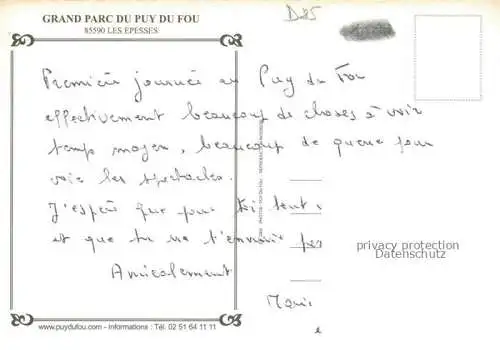 GRAND PARC DU PUY DU FOU
85590 LES EPESSES
D85
Première journée au Puy du Fou
effectivement beaucoup de choses à voir
temps moyen, beaucoup de queue pour
voir les spectacles.
J'espère que pour toi tout
et que tu ne t'ennuie pas
Amicalement
privacy protection
Datenschutz
www.puydufou.com - Informations : Tél. 02 51 64 11 11